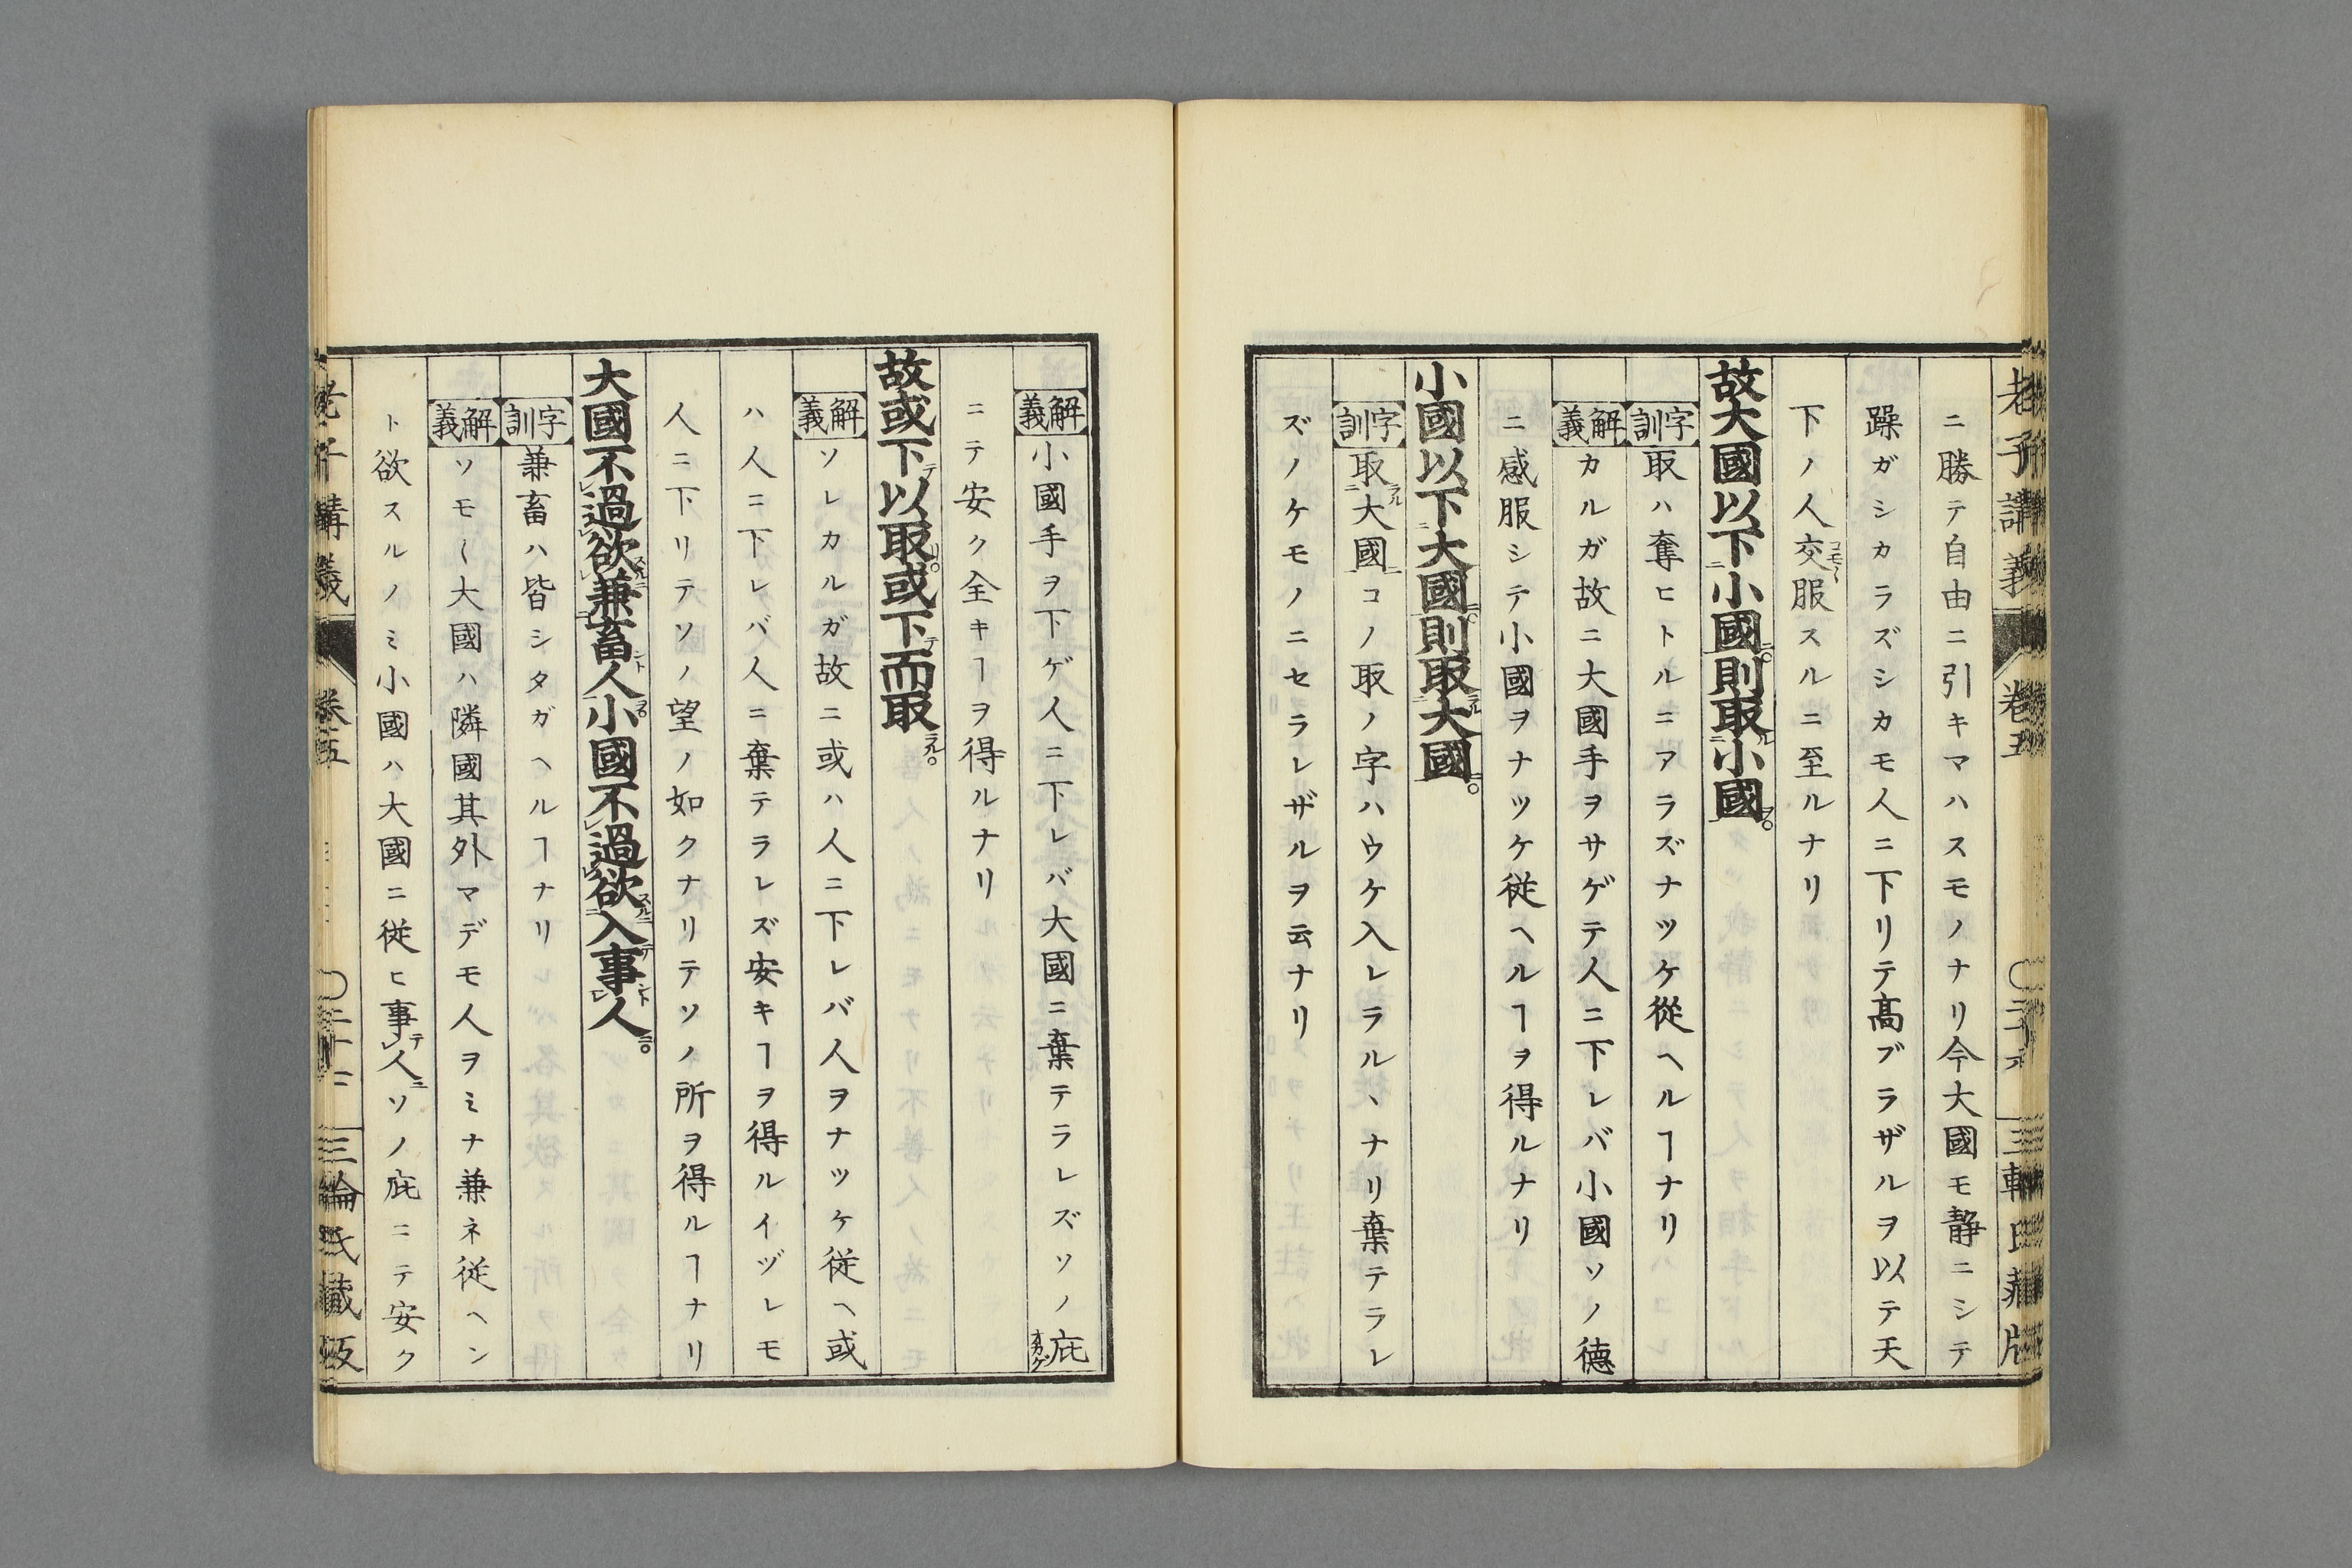 老子講義 卷五 〇二十六 三輪氏藏版
ニ勝テ自由ニ引キマハスモノナリ今大國モ静ニシテ
躁ガシカラズシカモ人ニ下リテ髙ブラザルヲ以テ天
下ノ人交コモ〱服スルニ至ルナリ
故大國以下ニ小國一ニ。則取ル二小國一ヲ。
字訓 取ハ奪ヒトルニアラズナツケ從ヘルヿナリ
解義 カルガ故ニ大國手ヲサゲテ人ニ下レバ小國ソノ德
ニ感服シテ小國ヲナツケ從ヘルヿヲ得ルナリ
小國以下二大國一ニ。則取ラル二大國一ニ。
字訓 取ラル二大國一コノ取ノ字ハウケ入レラル、ナリ棄テラレ
ズノケモノニセラレザルヲ云ナリ
解義 小國手ヲ下ゲ人ニ下レバ大國ニ棄テラレズソノ庇オカゲ
ニテ安ク全キヿヲ得ルナリ
故或下テ以取リ。或下テ而取ラル。
解義 ソレカルガ故ニ或ハ人ニ下レバ人ヲナツケ從ヘ或
ハ人ニ下レバ人ニ棄テラレズ安キヿヲ得ルイヅレモ
人ニ下リテソノ望ノ如クナリテソノ所ヲ得ルヿナリ
大國不レ過レ欲スルニレ兼二畜ント人一ヲ。小國不レ過レ欲スルニ二入テ事ント一レ人ニ。
字訓 兼畜ハ皆シタガヘルヿナリ
解義 ソモ〱大國ハ隣國其外マデモ人ヲミナ兼ネ從ヘン
ト欲スルノミ小國ハ大國ニ從ヒ事テレ人ニソノ庇ニテ安ク
老子講義 卷五 三輪氏藏版